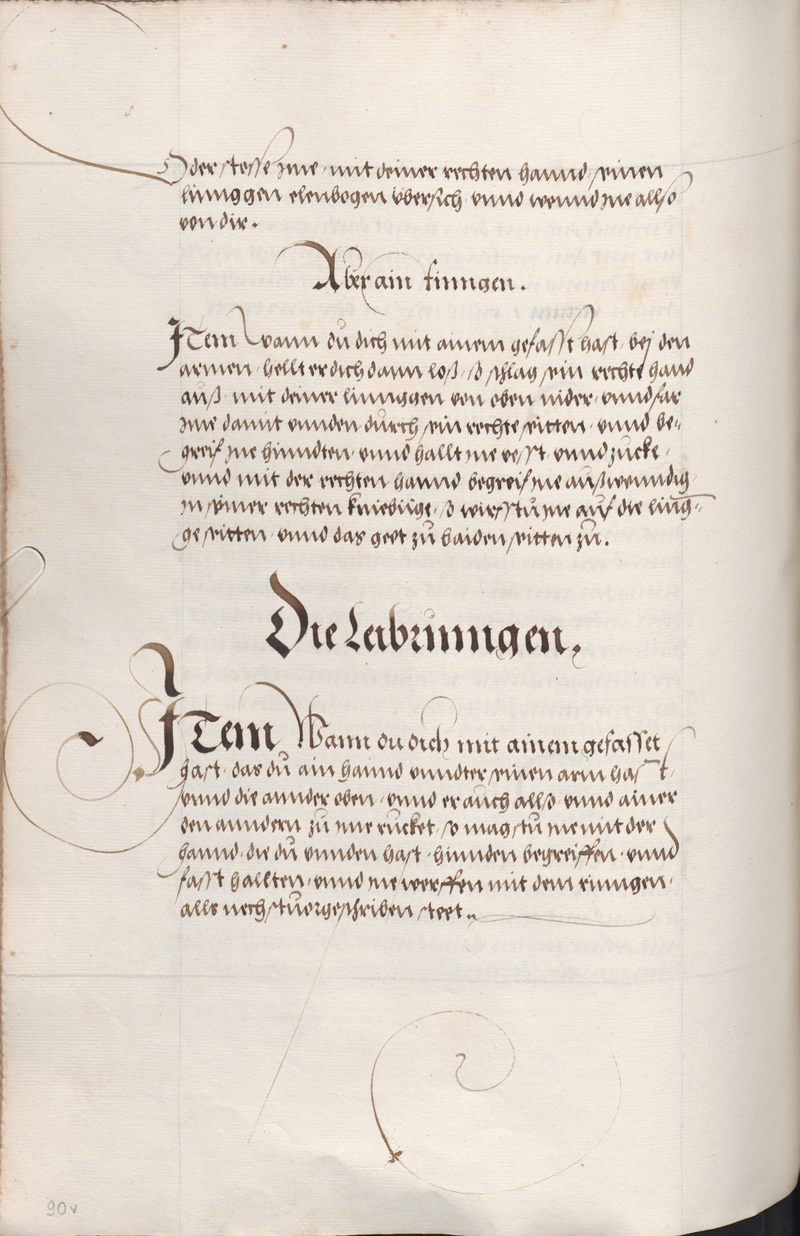 Oder stosse jme mit deiner rechten hannd seinen
linnggen elenbogen übersich vnnd wennd jne allso
von dir.
Aber ain rinngen.
JTem wann du dich mit ainem gefasst hast bej den
armen hellt er dich dann loß, so schlag sein rechte hand
auß mit deiner linnggen von oben nider vnnd far
jme damit vnnden durch sein rechte seitten vnnd be-
greif jne hinndten vnnd hallt jne vesst vnnd zucke
vnnd mit der rechten hannd begreif jne außwenndig
jn seiner rechten kniebüge, so wirfstu jne auf die ling-
ge seitten vnnd das geet zu baiden seitten zu.
Die Leibrinngen.
JTem Wann du dich mit ainem gefasset
hast das du ain hannd vnndter seinen arm hast,
vnnd die annder oben vnnd er auch allso vnnd ainer
den anndern zu jme rucket so magstu jne mit der
hannd die du vnnden hast hinnden begreiffen vnnd
fasst hallten vnnd jne werffen mit dem rinngen
alls nechst vorgeschriben steet.
90v